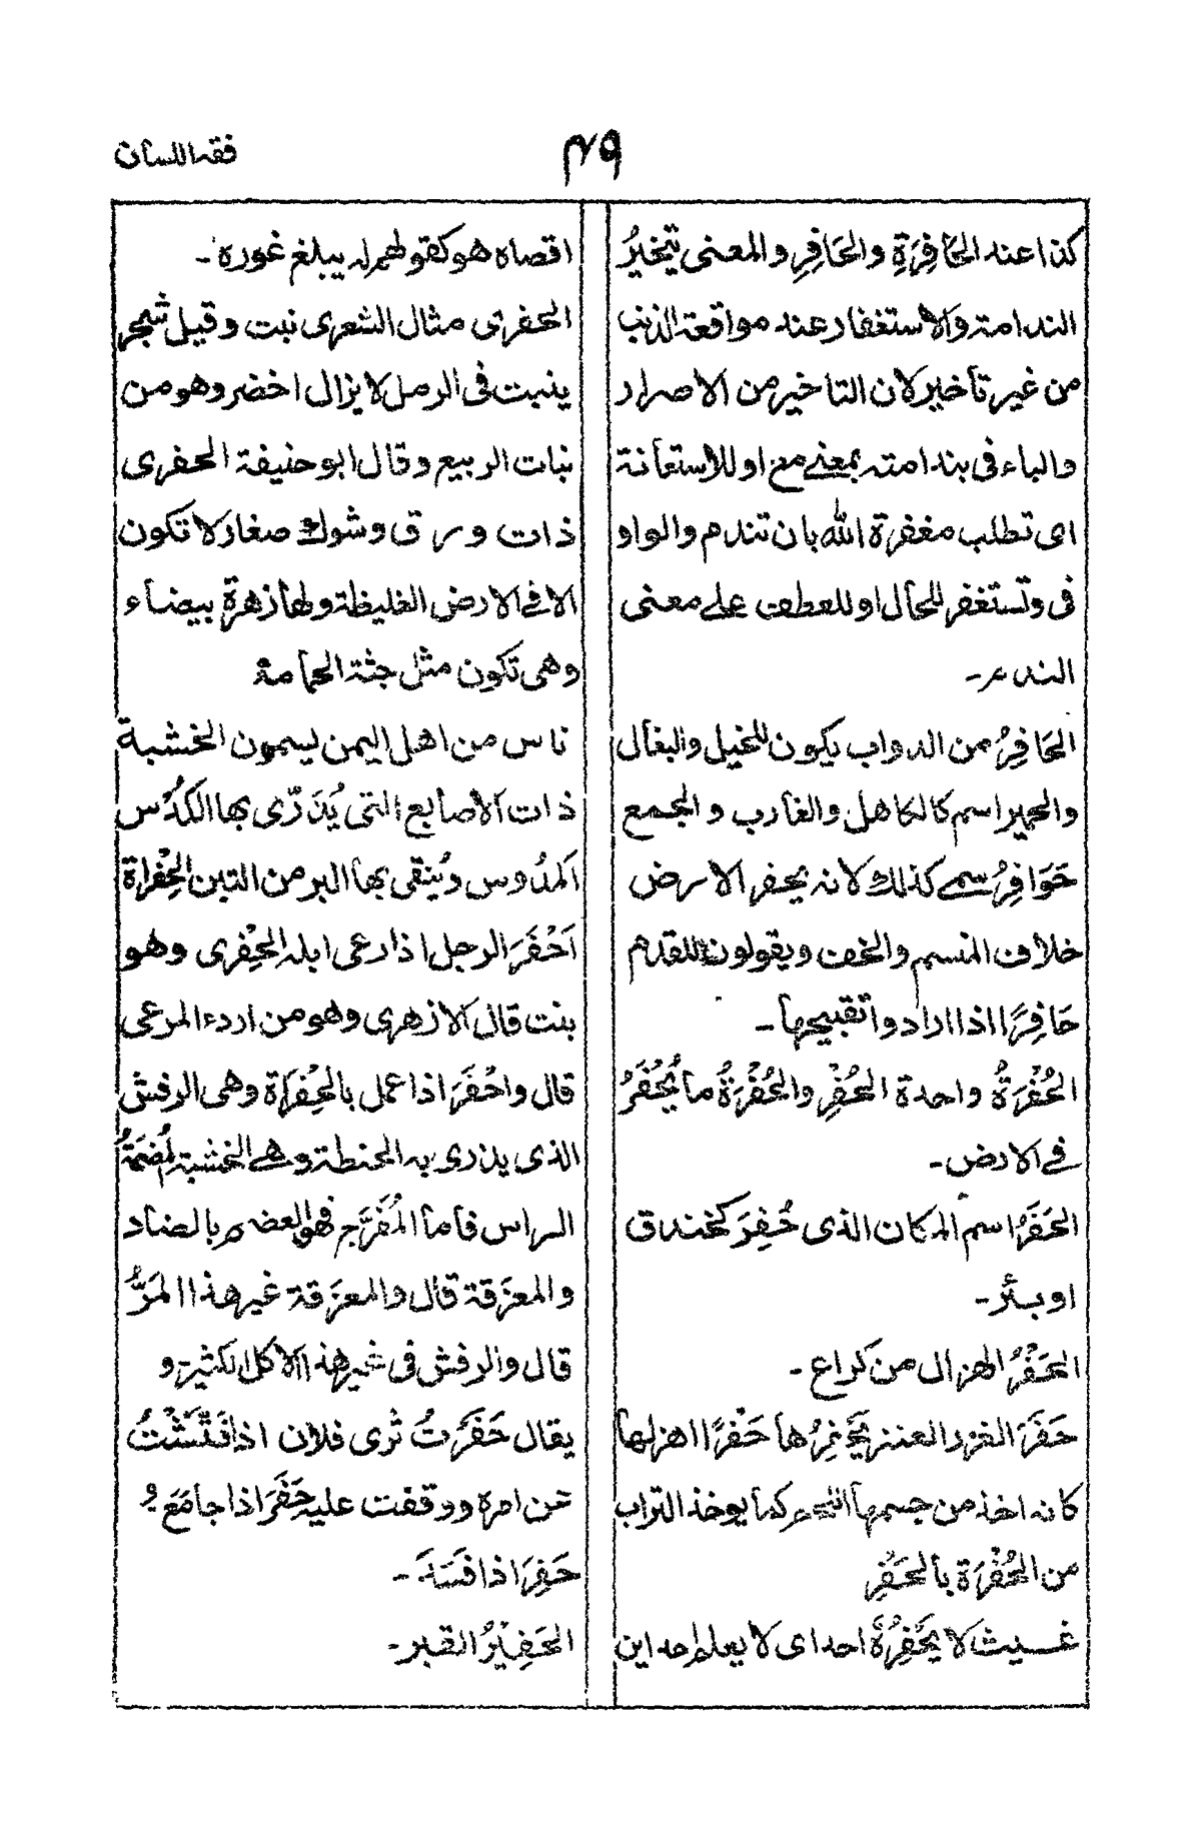 فقه اللسان
۴۹
كذا عند الحَافِرَةِ والحَافِرِ والمعنى تيخيرُ
الندامة والاستغفار عند مواقعة الذنب
من غير تأخير لان التاخير من الاصرار
والباء فى بندامته بمعنے مع او للاستعانة
اى تطلب مغفرة الله بان تندم والواو
فى وتستغفر للحال او للعطف علے معنى
الندم۔
الحَافِرُ من الدواب يكون للخيل والبغال
والحمير اسم كالكاهل والغارب والجمع
حَوَافِرُ سمے كذلك لانه يحفر الارض
خلاف المنسم والخف ويقولون للقدم
حَافِرًا اذا ارادوا تقبيحها۔
الحُفْرَةُ واحدة الحُفَرِ والحُفْرَةُ ما يُحْفَرُ
فے الارض۔
الحَفَرُ اسم المكان الذى حُفِرَ كخندق
او بئر۔
الحَفْرُ الهزال من كراع۔
حَفَرَ الغرز العنز يَحْفِرُها حَفْرًا اهزلها
كانه اخذ من جسمها اللحم كما يوخذ التراب
من الحُفْرَة بالحَفْرِ
غيث لا يَحْفِرُهُ احد اى لا يعلم احد اين
اقصاه هو كقولهم لم يبلغ غوره۔
الحفرى مثال الشعرى نبت وقيل شجر
ينبت فى الرمل لا يزال اخضر وهو من
نبات الربيع وقال ابو حنيفة الحفرى
ذات ورق وشوك صغار لا تكون
الا فے الارض الغليظة ولها زهرة بيضاء
وهى تكون مثل جثة الحمامة
ناس من اهل اليمن يسمون الخشبة
ذات الاصابع التى يُذَرّى بها الكُدْس
اَلمدُوس ويُنقى بها البر من التبن الحِفْراة
اَحْفَرَ الرجل اذا رعى ابله الحِفْرى وهو
بنت قال الازهرى وهو من اردء المرعى
قال واحْفَرَ اذا عمل بالحِفْرَاة وهى الرفش
الذى يذرى به الحنطة وهے الخشبة المُصْمَتَةُ
الراس فاما المُفَرَّج فهو العضم بالضاد
والمعزَقة قال والمعزَقة غير هذا المَرُّ
قال والرفش فى غير هذا الاكل الكثير و
يقال حَفَرْتُ ثرى فلان اذا فَتَّشْتُ
عن امره ووقفت عليه حَفَرَ اذا جامَعَ و
حَفِرَ اذا فَسَدَ۔
الحَفِيْرُ القبر۔